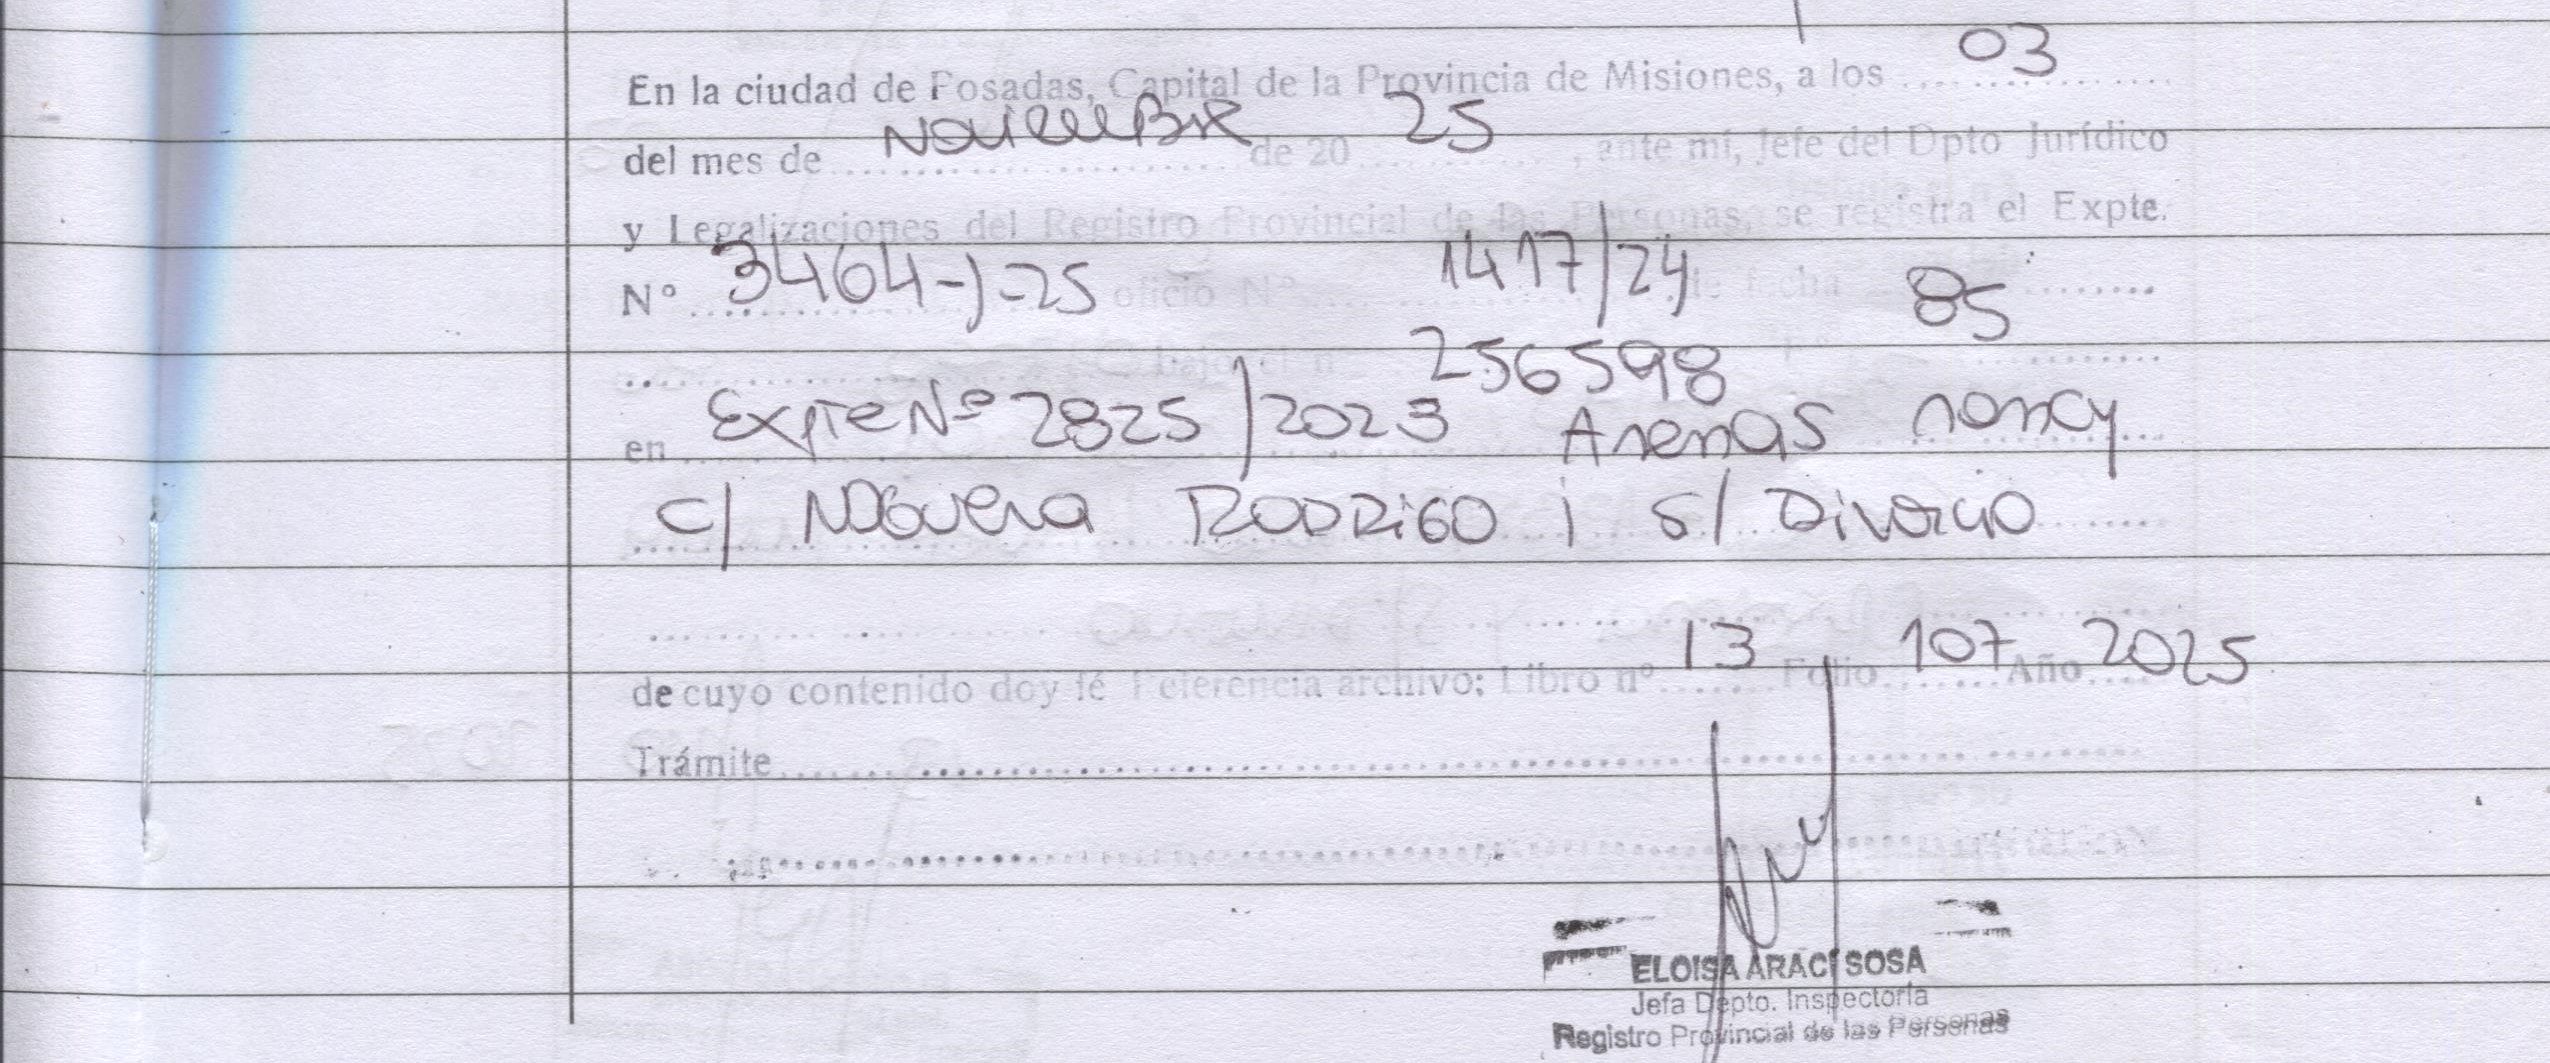 En la ciudad de Posadas, Capital de la Provincia de Misiones, a los 03
del mes de Noviembre de 20 25, ante mi, Jefe del Dpto Jurídico
y Legalizaciones del Registro Provincial de las Personas, se registra el Expte.
Nº 3464-J-25 oficio Nº 1417/24 de fecha
bajo el nº 256598 Fº 85
en Expte Nº 2825/2023 Arenas nancy
c/ Noguera RODRIGO j s/ Divorcio
de cuyo contenido doy fé Referencia archivo: Libro nº 13 Folio 107 Año 2025
Trámite
ELOISA ARACI SOSA
Jefa Depto. Inspectoría
Registro Provincial de las Personas